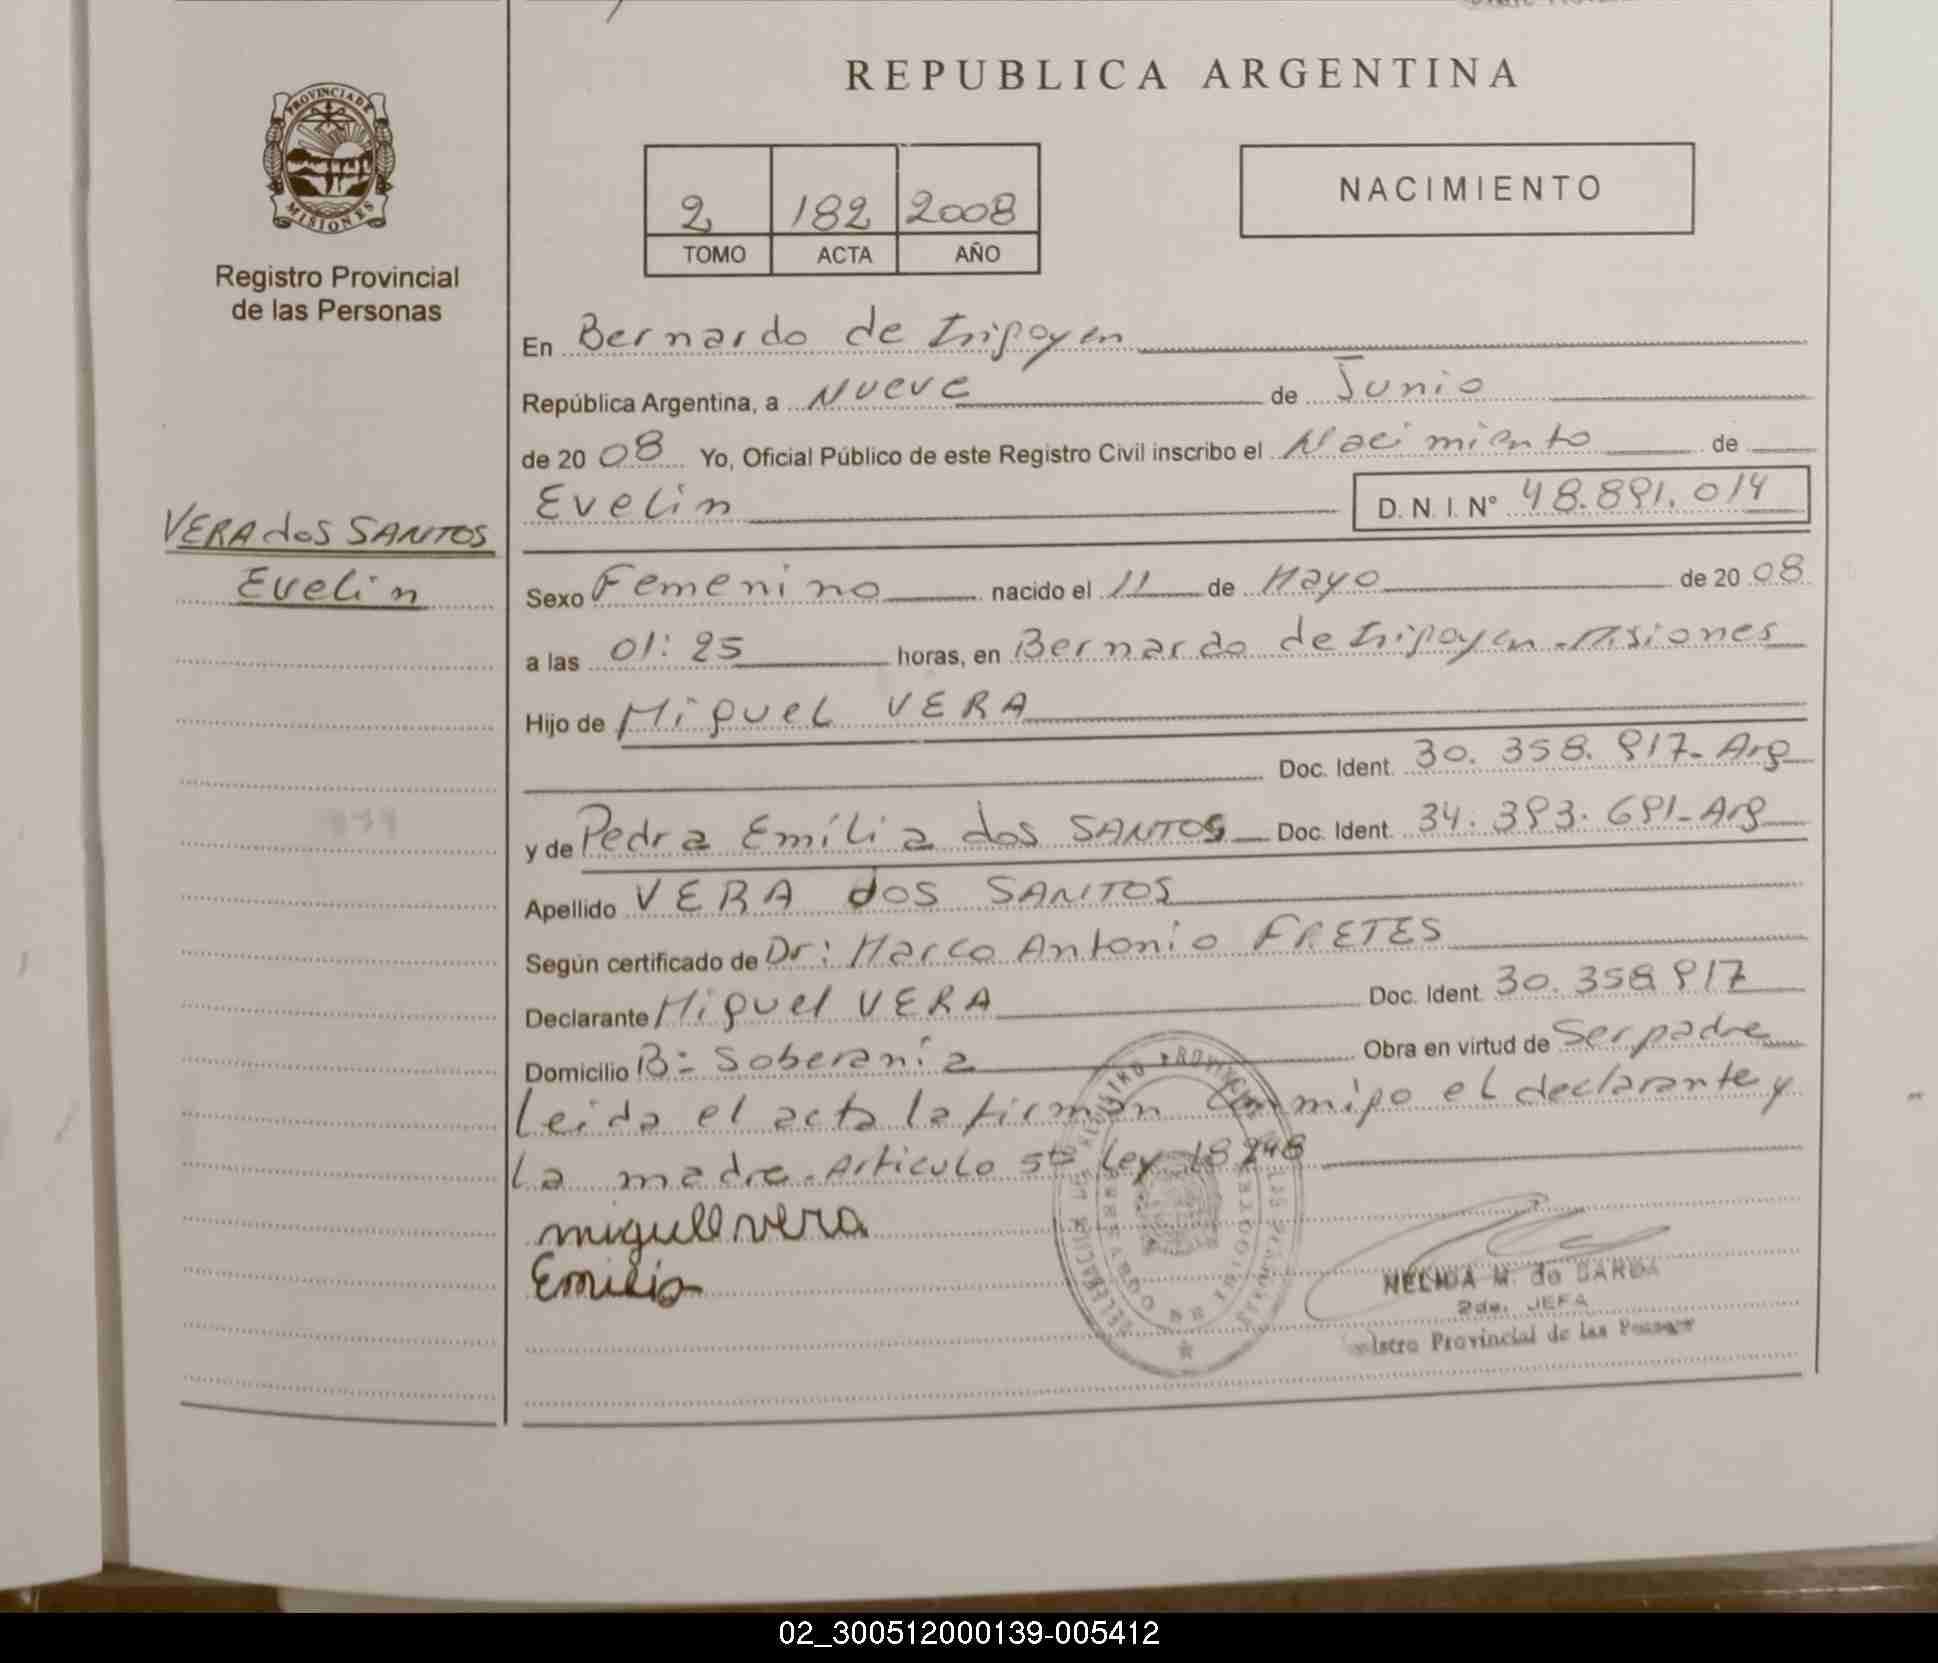 REPUBLICA ARGENTINA
PROVINCIA DE
MISIONES
Registro Provincial
de las Personas
2 182 2008
TOMO ACTA AÑO
NACIMIENTO
En Bernardo de Irigoyen
República Argentina, a Nueve de Junio
de 20 08 Yo, Oficial Público de este Registro Civil inscribo el Nacimiento de
Evelin D. N. I. N° 48.891.014
VERA dos SANTOS
Evelin
Sexo Femenino nacido el 11 de Mayo de 20 08
a las 01:25 horas, en Bernardo de Irigoyen - Misiones
Hijo de Miguel VERA
Doc. Ident. 30.358.917- Arg
y de Pedra Emilia dos SANTOS Doc. Ident. 34.393.691- Arg
Apellido VERA dos SANTOS
Según certificado de Dr: Marco Antonio FRETES
Declarante Miguel VERA Doc. Ident. 30.358.917
Domicilio B= Soberanía Obra en virtud de Ser padre
Leida el acta la firman Conmigo el declarante y
La madre. Articulo 5to Ley 18248
miguel vera
Emilia
NELIDA M. de
2da. JEFA
istro Provincial de las Personas
02_300512000139-005412